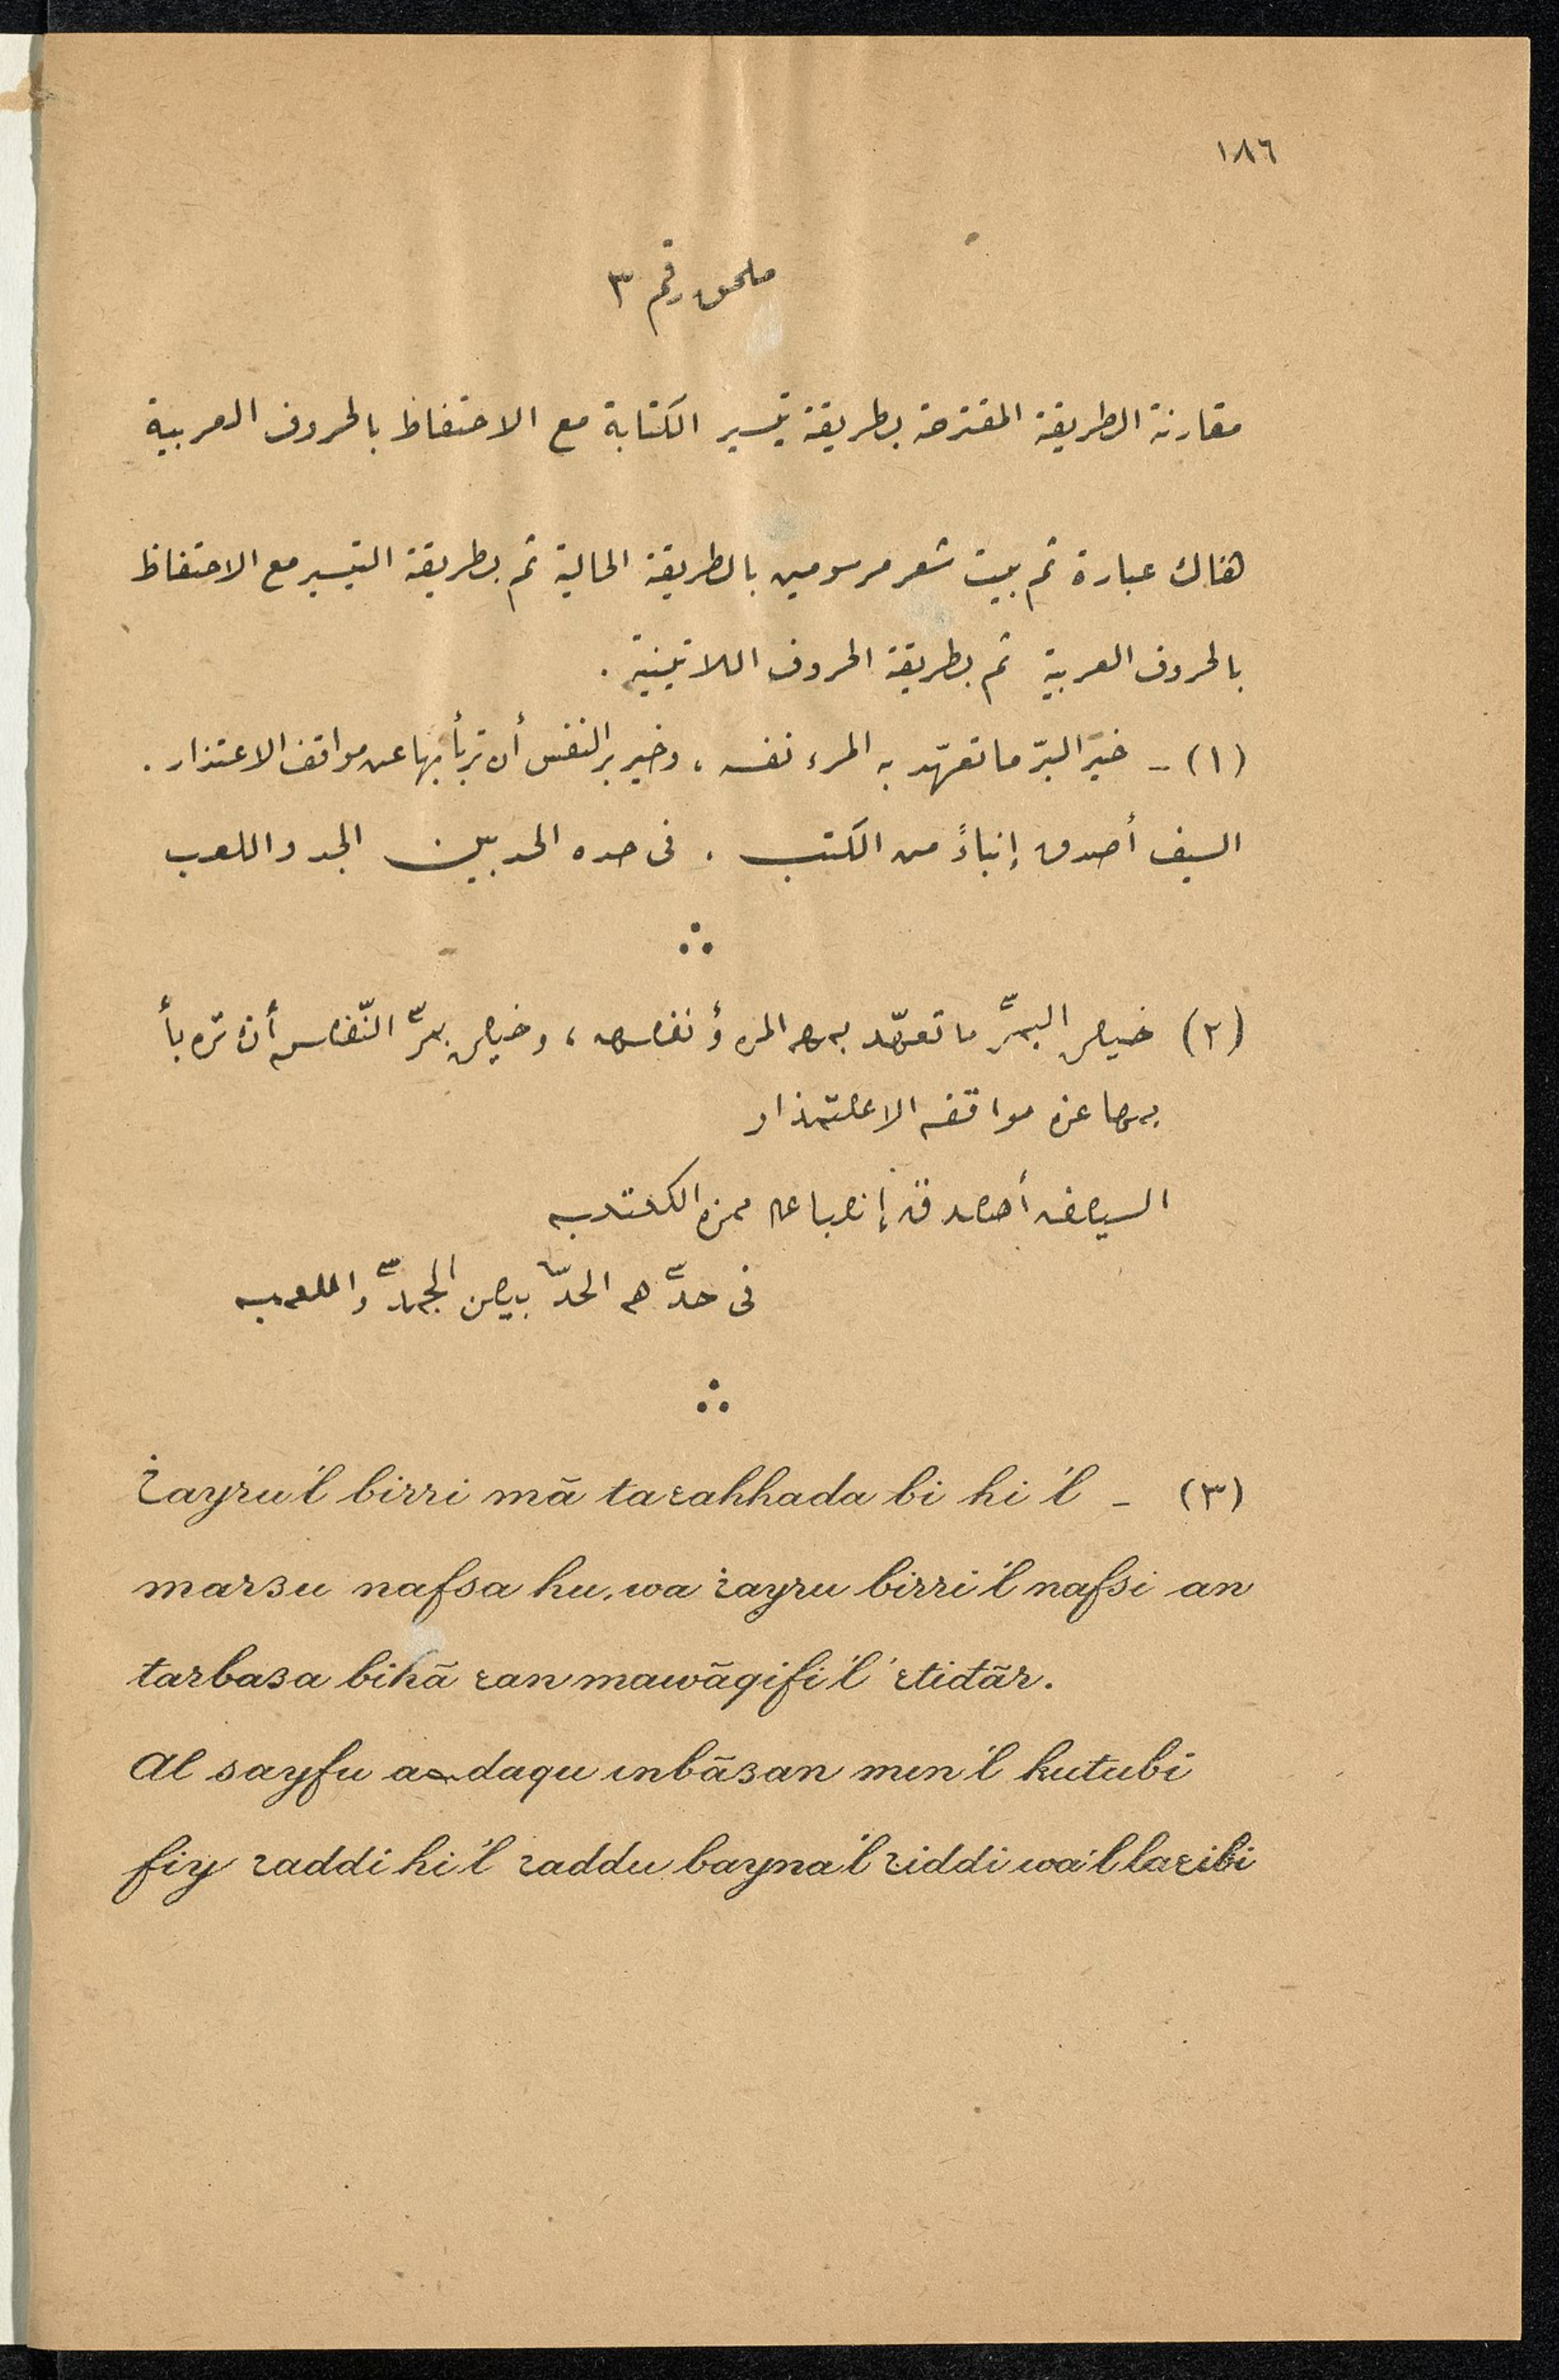 ١٨٦
ملحق رقم ٣
مقارنة الطريقة المقترحة بطريقة تيسير الكتابة مع الاحتفاظ بالحروف العربية
هناك عبارة ثم بيت شعر مرسومين بالطريقة الحالية ثم بطريقة التيسير مع الاحتفاظ
بالحروف العربية ثم بطريقة الحروف اللاتينية .
(١) - خير البرّ ما تعهّد به المرء نفسه ، وخير بر النفس أن تربأ بها عن مواقف الاعتذار .
السيف أصدق إنباءً من الكتب . فى حده الحد بين الجد واللعب
(٢) البرّ ما المرؤ ، النّفس
مواقف
السيف
فى حدّه الحدّ
(٣) - ɛ̇ayru'l birri mā taɛahhada bi hi'l
marɜu nafsa hu, wa ɛ̇ayru birri'l nafsi an
tarbaɜa bihā ɛan mawāqifi'l 'ɛtiđār.
Al sayfu daqu inbāɜan min'l kutubi
fiy ɛaddi hi'l ɛaddu bayna'l ɛiddi wa'l laɛibi